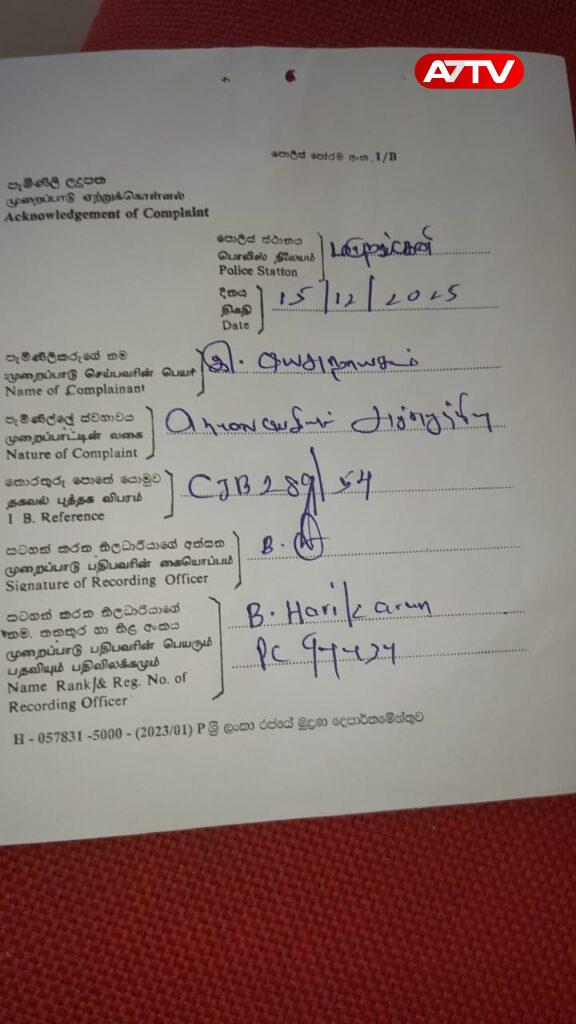 A7TV
පොලිස් පෝරම අංක. 1/B
පැමිණිලි ලදුපත
முறைப்பாடு ஏற்றுக்கொள்ளல்
Acknowledgement of Complaint
පොලිස් ස්ථානය
பொலிஸ் நிலையம்
Police Station
දිනය
திகதி
Date
15/12/2025
පැමිණිලිකරුගේ නම
முறைப்பாடு செய்பவரின் பெயர்
Name of Complainant
පැමිණිල්ලේ ස්වභාවය
முறைப்பாட்டின் வகை
Nature of Complaint
තොරතුරු පොතේ යොමුව
தகவல் புத்தக விபரம்
I B. Reference
289/54
සටහන් කරන නිලධාරියාගේ අත්සන
முறைப்பாடு பதிபவரின் கையொப்பம்
Signature of Recording Officer
B.
සටහන් කරන නිලධාරියාගේ
නම, තනතුර හා නිල අංකය
முறைப்பாடு பதிபவரின் பெயரும்
பதவியும் பதிவிலக்கமும்
Name Rank/& Reg. No. of
Recording Officer
B. Harikaran
PC
H - 057831 -5000 - (2023/01) P ශ්‍රී ලංකා රජයේ මුද්‍රණ දෙපාර්තමේන්තුව